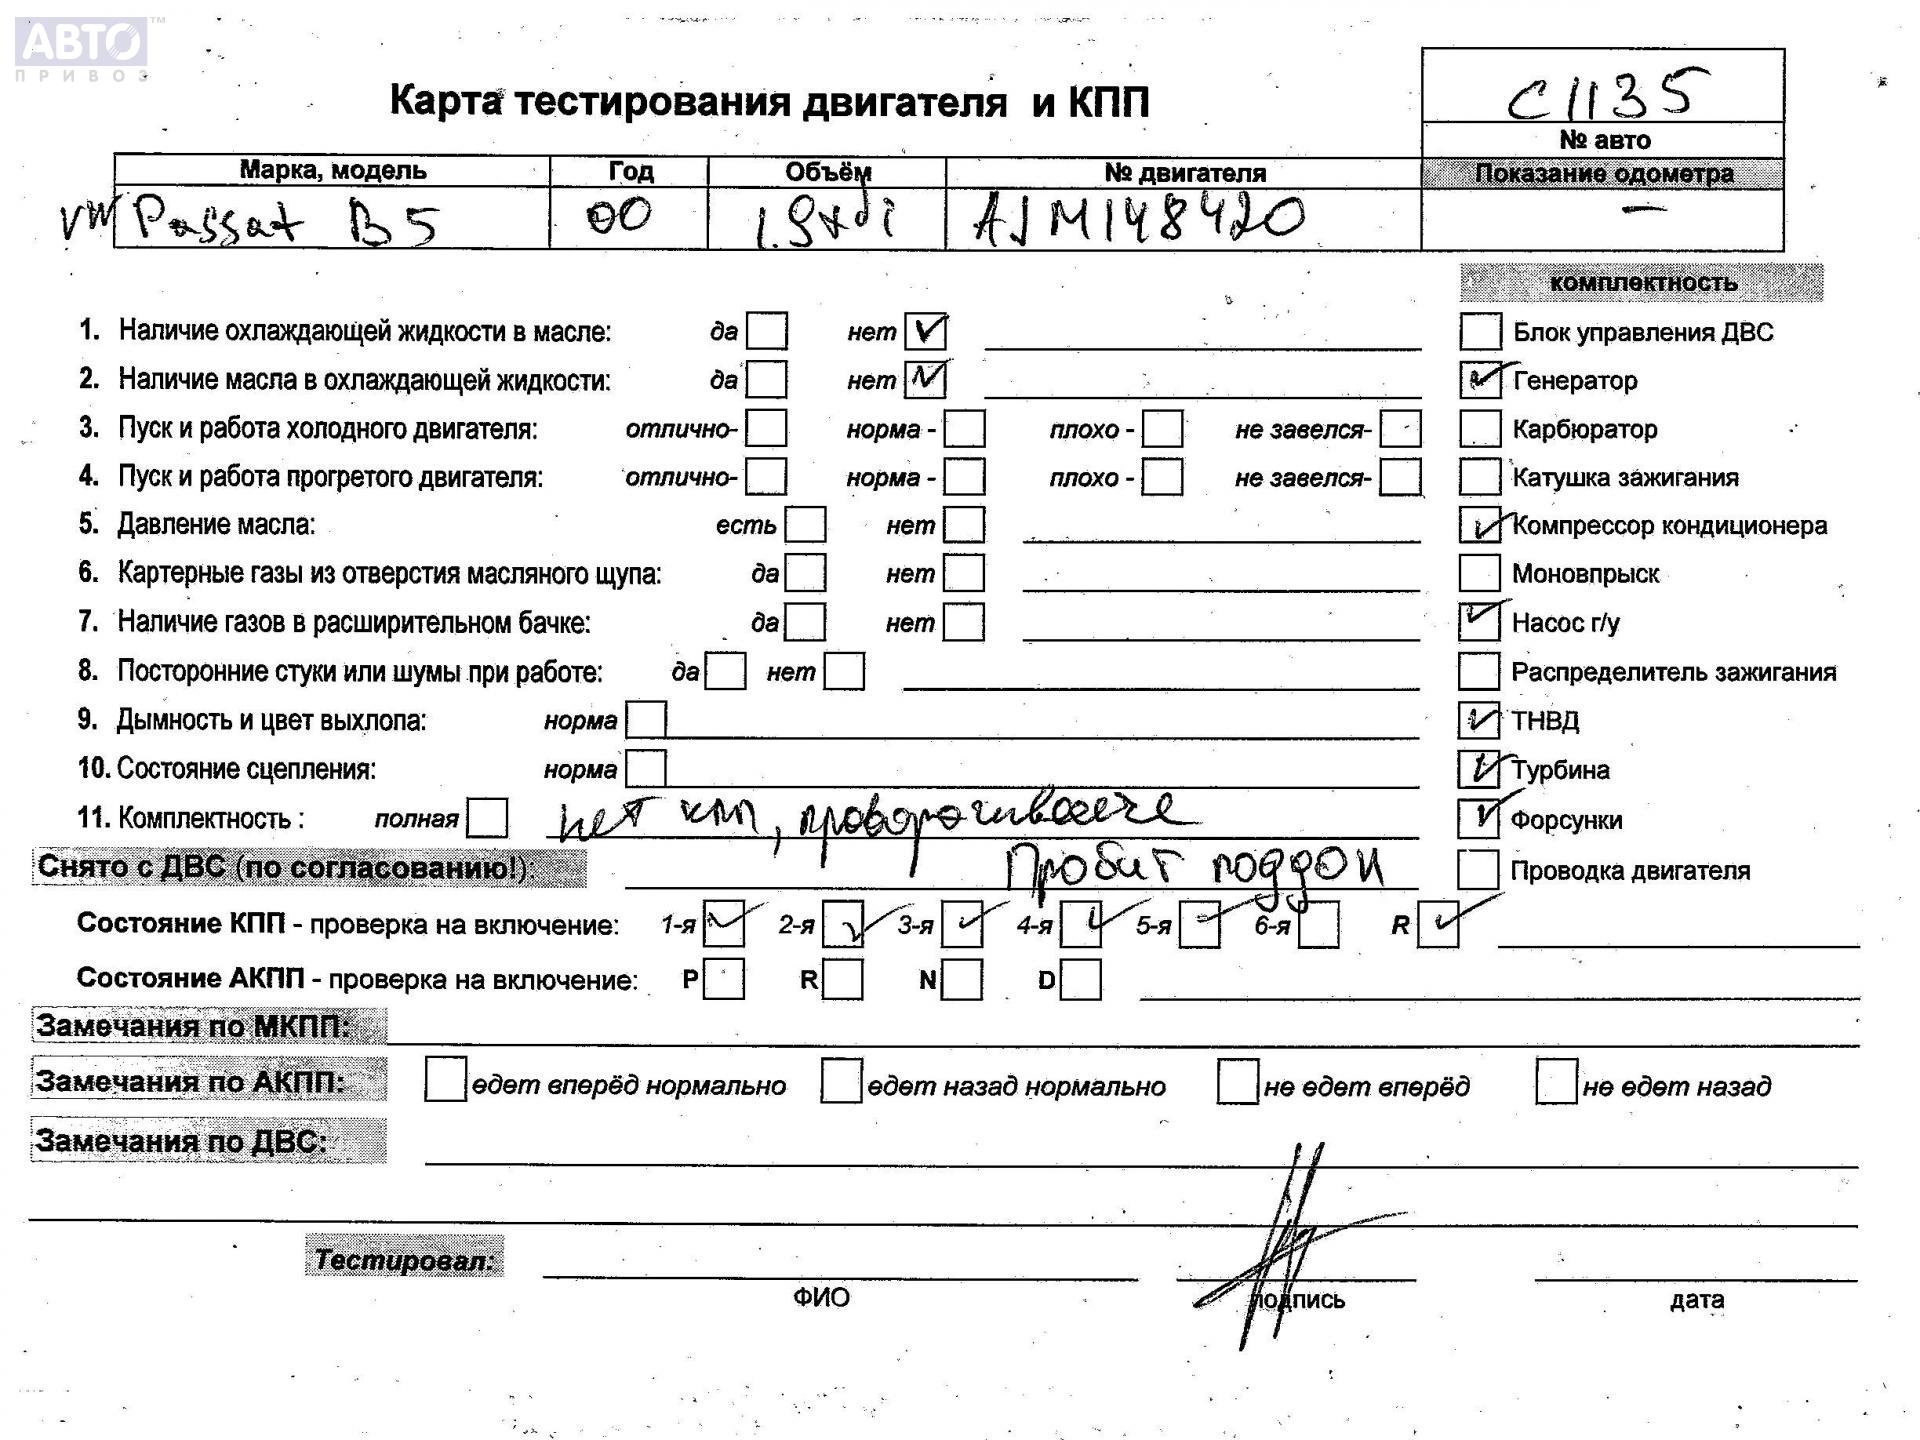 АВТО™
ПРИВОЗ
Карта тестирования двигателя и КПП
C1135
№ авто
Марка, модель Год Объём № двигателя Показание одометра
VW Passat B5 00 1.9tdi AJM148420 —
комплектность
1. Наличие охлаждающей жидкости в масле: да нет ✓ Блок управления ДВС
2. Наличие масла в охлаждающей жидкости: да нет ✓ ✓ Генератор
3. Пуск и работа холодного двигателя: отлично- норма - плохо - не завелся- Карбюратор
4. Пуск и работа прогретого двигателя: отлично- норма - плохо - не завелся- Катушка зажигания
5. Давление масла: есть нет ✓ Компрессор кондиционера
6. Картерные газы из отверстия масляного щупа: да нет Моновпрыск
7. Наличие газов в расширительном бачке: да нет ✓ Насос г/у
8. Посторонние стуки или шумы при работе: да нет Распределитель зажигания
9. Дымность и цвет выхлопа: норма ✓ ТНВД
10. Состояние сцепления: норма ✓ Турбина
11. Комплектность : полная нет кпп, ✓ Форсунки
Снято с ДВС (по согласованию!): Пробит поддон Проводка двигателя
Состояние КПП - проверка на включение: 1-я ✓ 2-я ✓ 3-я ✓ 4-я ✓ 5-я ✓ 6-я R ✓
Состояние АКПП - проверка на включение: P R N D
Замечания по МКПП:
Замечания по АКПП: едет вперёд нормально едет назад нормально не едет вперёд не едет назад
Замечания по ДВС:
Тестировал:
ФИО подпись дата